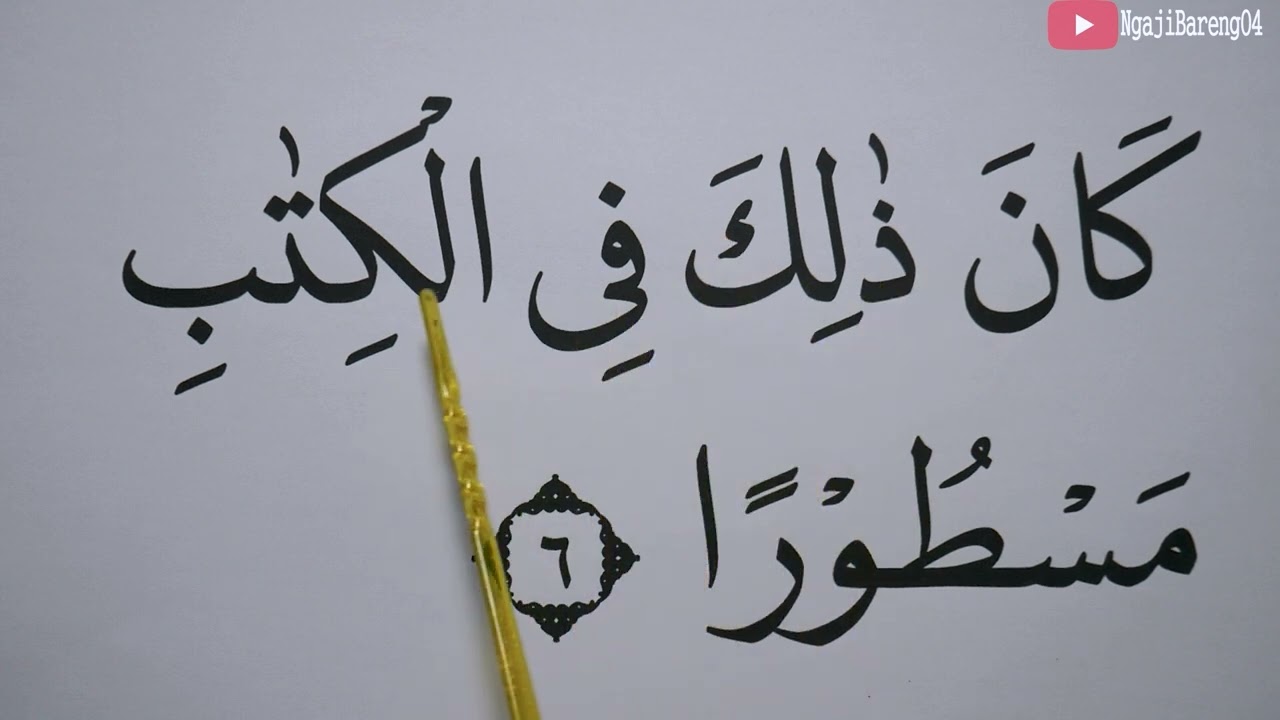 NgajiBareng04
كَانَ ذٰلِكَ فِى الْكِتٰبِ
مَسْطُوْرًا ٦